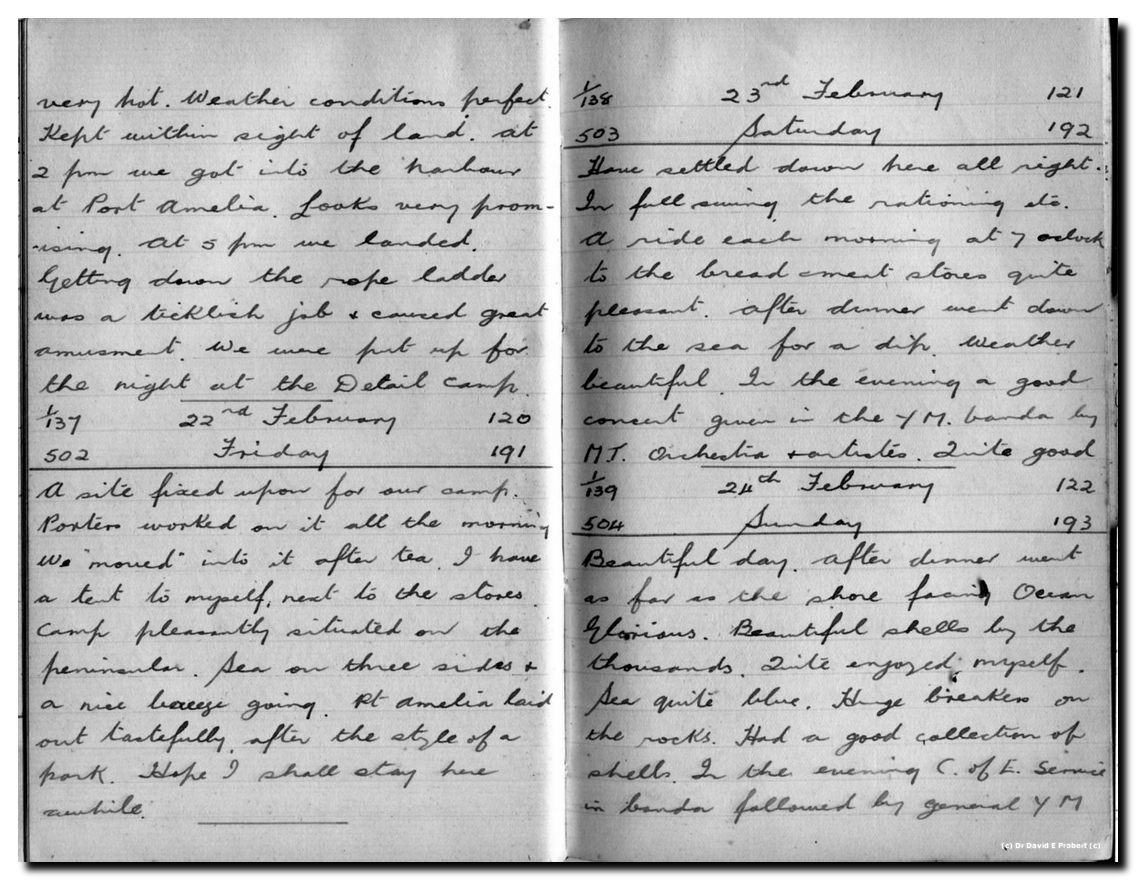 very hot. Weather conditions perfect.
Kept within sight of land. at
2 pm we got into the harbour
at Port Amelia. Looks very prom-
ising. At 5 pm we landed.
Getting down the rope ladder
was a ticklish job & caused great
amusment. We were put up for
the night at the Detail Camp.
1/137 22nd February 120
502 Friday 191
A site fixed upon for our camp.
Porters worked on it all the morning
We "moved" into it after tea. I have
a tent to myself, next to the stores.
Camp pleasantly situated on the
peninsular. Sea on three sides &
a nice breeze going. Pt Amelia laid
out tastefully after the style of a
park. Hope I shall stay here
awhile.
1/138 23rd February 121
503 Saturday 192
Have settled down here all right.
In full swing the rationing etc.
A ride each morning at 7 oclock
to the bread & meat stores quite
pleasant. After dinner went down
to the sea for a dip. Weather
beautiful. In the evening a good
concert given in the YM. banda by
MT. Orchestra & artistes. Quite good
1/139 24th February 122
504 Sunday 193
Beautiful day. After dinner went
as far as the shore facing Ocean
Glorious. Beautiful shells by the
thousands. Quite enjoyed myself.
Sea quite blue. Huge breakers on
the rocks. Had a good collection of
shells. In the evening C. of E. Service
in banda followed by general Y M
(c) Dr David E Probert (c)